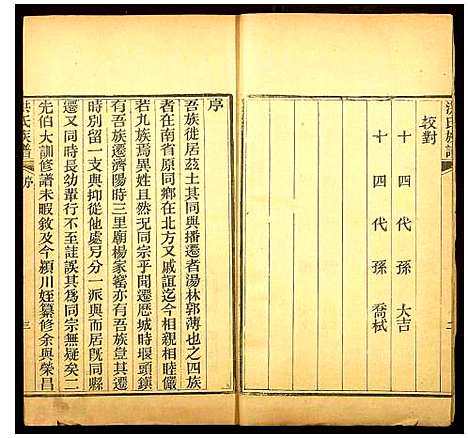 洪氏族譜
二
較對
十四代孫 大吉
十四代孫 喬栻
序
吾族徙居茲土其同與播遷者湯林郭薄也之四族
者在南省原同鄉在北方又戚誼迄今相親相睦儼
若九族焉異姓且然況同宗乎聞遷歷城時堰頭鎮
有吾族遷濟陽時三里廟楊家窰亦有吾族豈其遷
時別留一支與抑從他處另分一派與而居既同縣
遷又同時長幼輩行不至詿誤其為同宗無疑矣二
先伯大訓修譜未暇敘及今潁川姪纂修余與榮昌
洪氏族譜
序
三